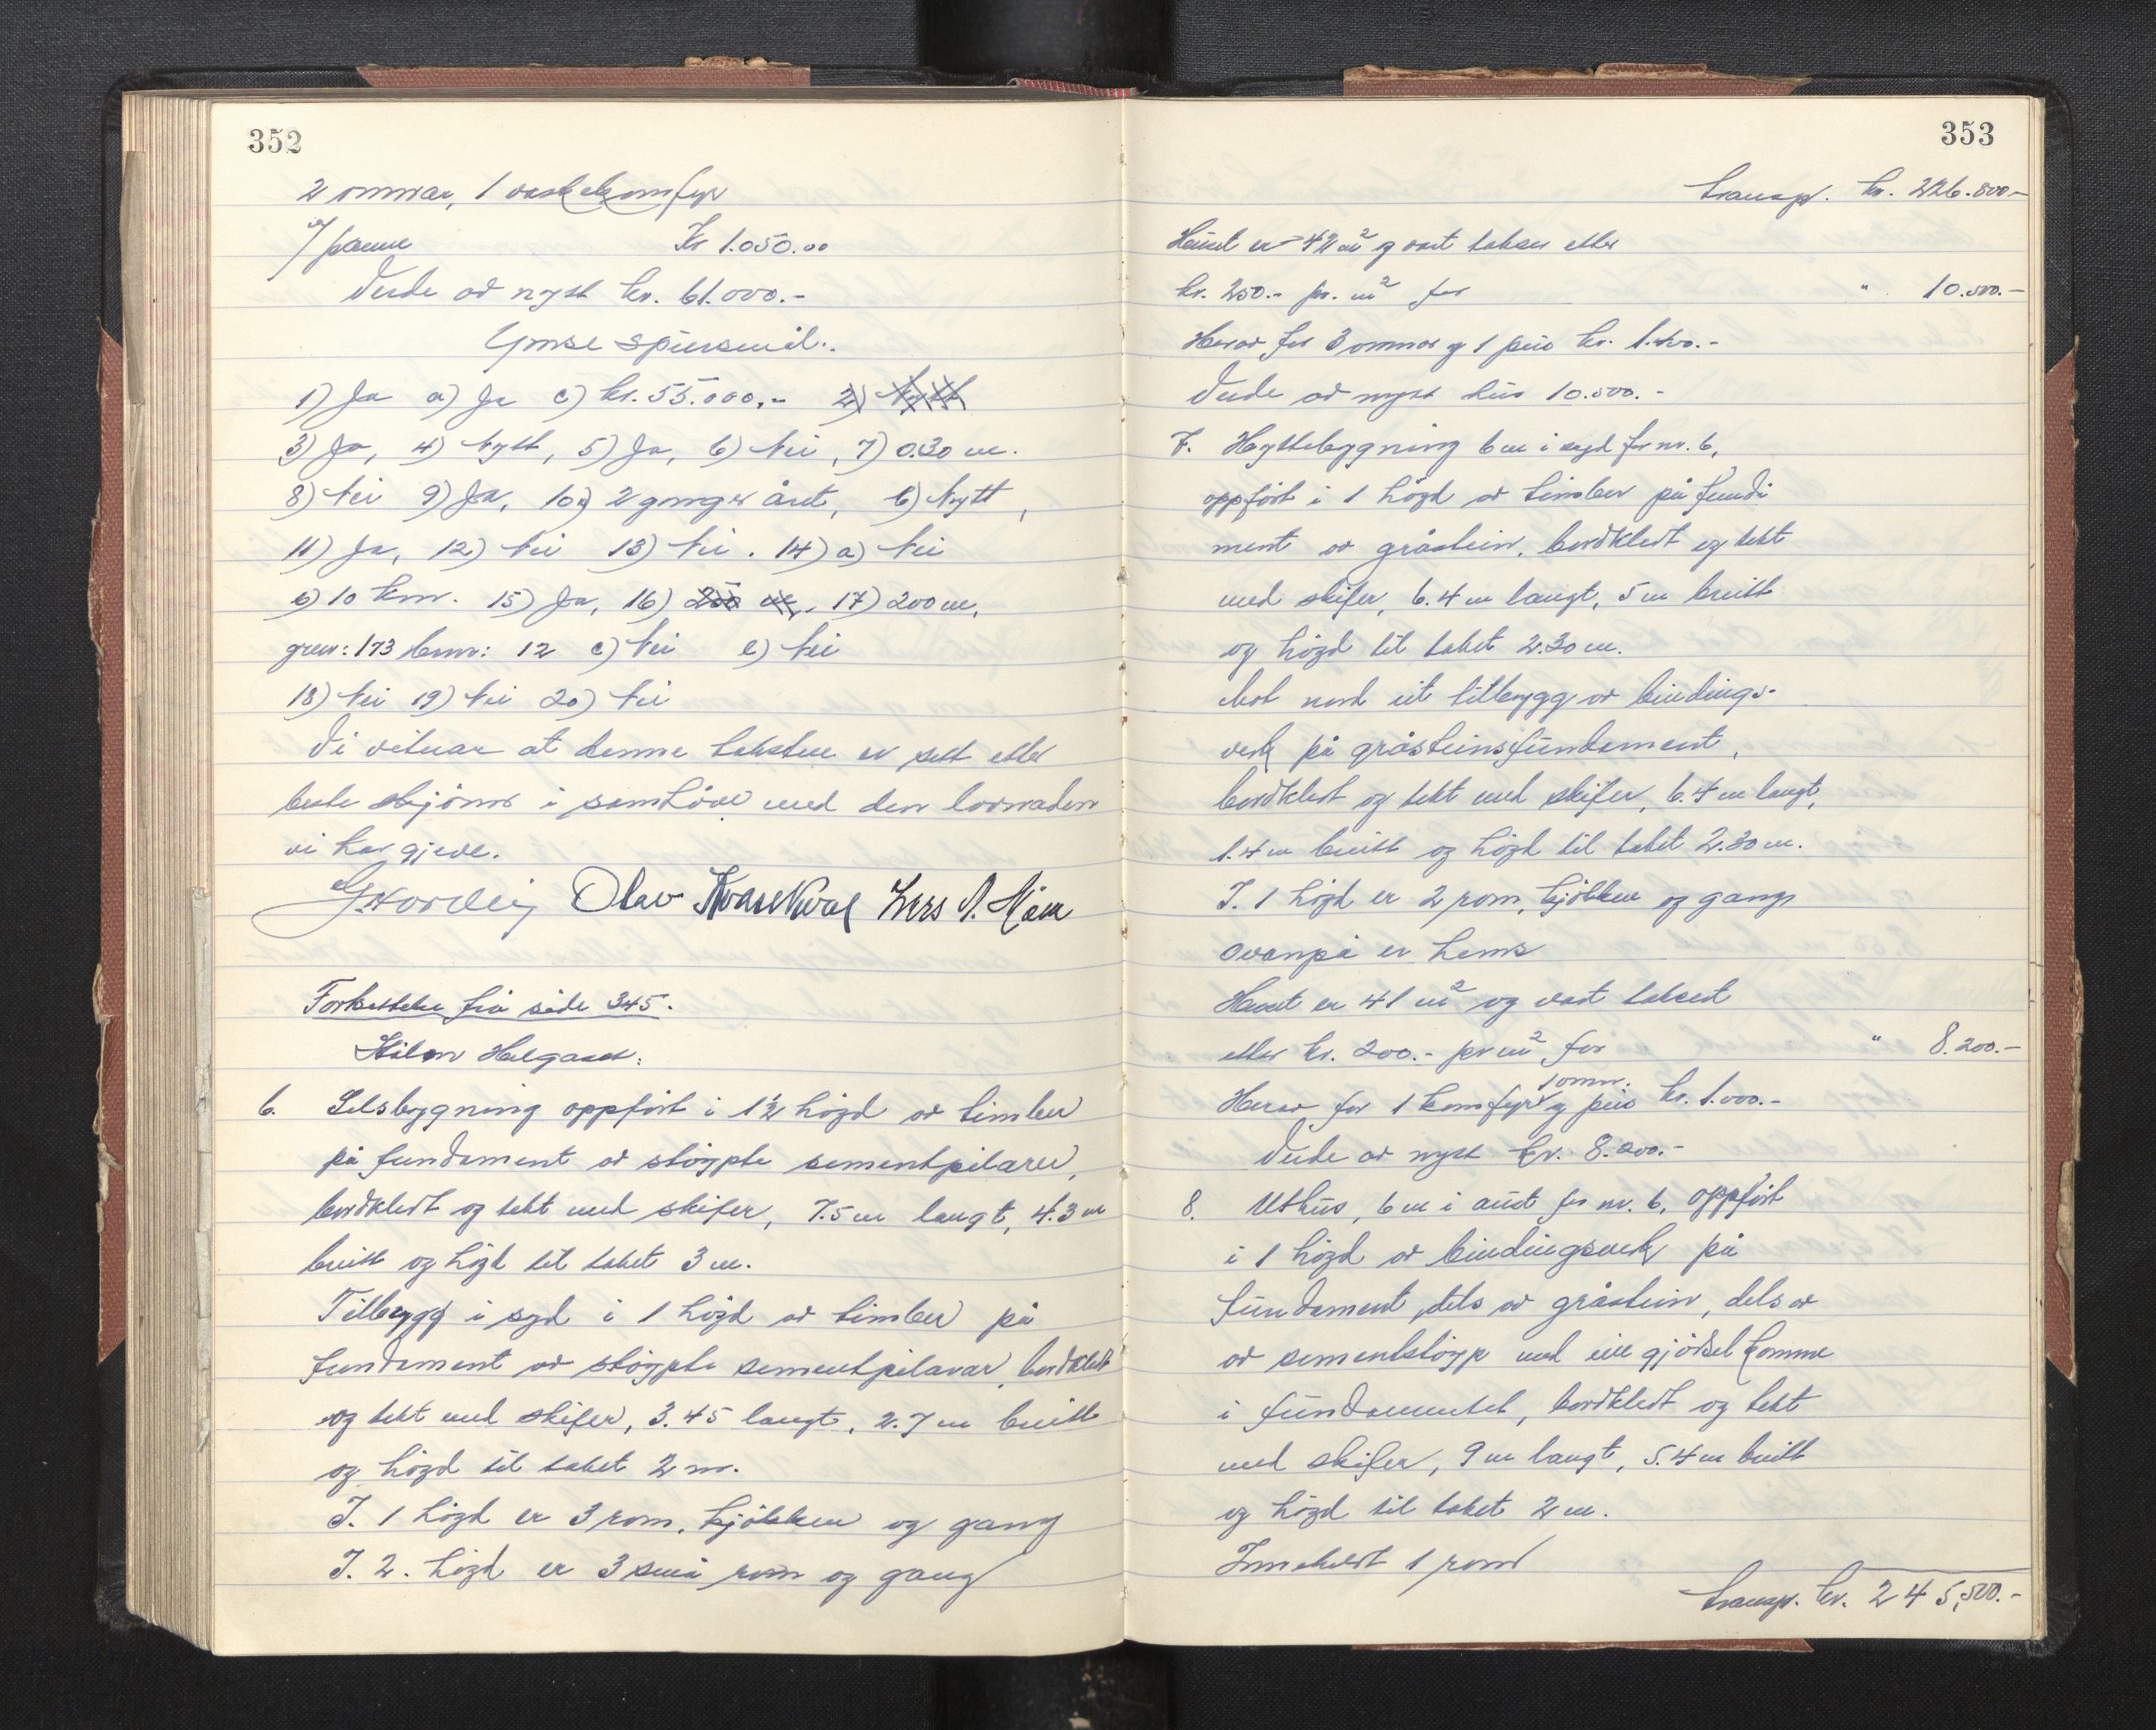 352
2 omnar, 1 vaskekomfyr
m/panne Kr 1.050.00
Verde av nytt kr. 61.000.-
Ymse spursmål.
1) Ja a) Ja c) kr. 55.000,- 2) Nytt
3) Ja, 4) Nytt, 5) Ja, 6) Nei, 7) 0.30 m.
8) Nei 9) Ja, 10a) 2 gonger året, b) Nytt,
11) Ja, 12) Nei 13) Nei. 14) a) Nei
b) 10 km. 15) Ja, 16) 200 m, 17) 200 m,
gnr: 173 bnr: 12 c) Nei e) Nei
18) Nei 19) Nei 20) Nei
Vi vitnar at denne taksten er sett etter
beste skjönn i samhöve med den lovnaden
vi har gjeve.
Olav Lers
Forkettelse frå side 345.
Helgaset.
6. Selsbygning oppfört i 1½ högd av timber
på fundament av stöypte sementpilarer,
bordkledt og tekt med skifer, 7.5 m langt, 4.3 m
breitt og högd til taket 3 m.
Tilbygg i syd i 1 högd av timber på
fundament av stöypte sementpilarar, bordkledt
og tekt med skifer, 3.45 langt, 2.7 m breitt
og högd til taket 2 m.
I. 1 högd er 3 rom, kjökken og gang
I. 2. högd er 3 små rom og gang
353
transp. kr. 226.800-
Huset er 42 m² og vart takser etter
kr. 250.- pr. m² for " 10.500.-
Herav for 3 omnar og 1 peis kr. 1.400.-
Verde av nytt hus 10.500.-
7. Hyttebygning 6 m i syd for nr. 6,
oppfört i 1 högd av timber på funda
ment av gråstein, bordkledt og tekt
med skifer, 6.4 m langt, 5 m breitt
og högd til taket 2.30 m.
Mot nord eit tilbygg av bindings-
verk på gråsteinsfundament,
bordkledt og tekt med skifer, 6.4 m langt,
1.4 m breitt og högd til taket 2.30 m.
I. 1 högd er 2 rom, kjökken og gang
ovanpå er hems
Huset er 41 m² og vart taksert
etter kr. 200.- pr m² for " 8.200.-
1 omn.
Herav for 1 komfyr og peis kr. 1.000.-
Verde av nytt kr. 8.200.-
8. Uthus, 6 m i aust for nr. 6, oppfört
i 1 högd av bindingsverk på
fundament, dels av gråstein, dels av
av sementstöyp med ein gjödselkomme
i fundamentet, bordkledt og tekt
med skifer, 9 m langt, 5.4 m breitt
og högd til taket 2 m.
Inneheldt 1 rom
transp. kr. 245,500.-